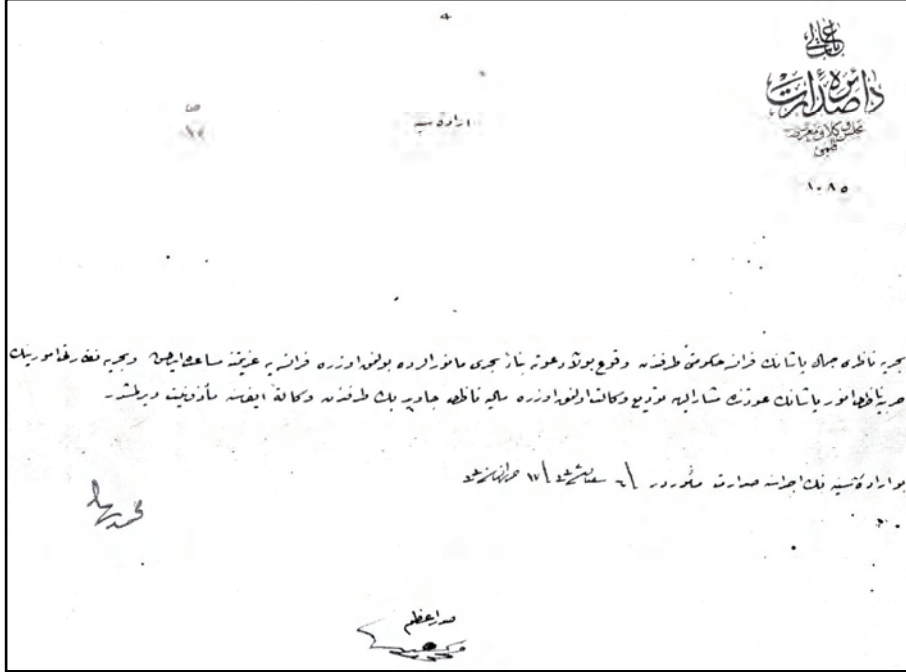 ٤
باب عالى
دائرهٔ صدارت
مجلس وكلا و معروضات
قلمى
١٠٨٥
ارادهٔ سنيه
بحريه ناظرى جمال پاشانك فرانسه حكومتى طرفندن وقوع بولان دعوته بناءً بحرى مانورالرده بولنمق اوزره فرانسه يه عزيمتنه مساعده ايدلمش و بحريه نظارتى امورينك
حربيه ناظرى انور پاشانك عودتنده مشار اليهه توديع وكالت اولنمق اوزره ماليه ناظرى جاويد بك طرفندن وكالةً ايفاسنه مأذونيت ويرلمشدر
بو ارادهٔ سنيه نك اجراسنه صدارت مأموردر
صدر اعظم